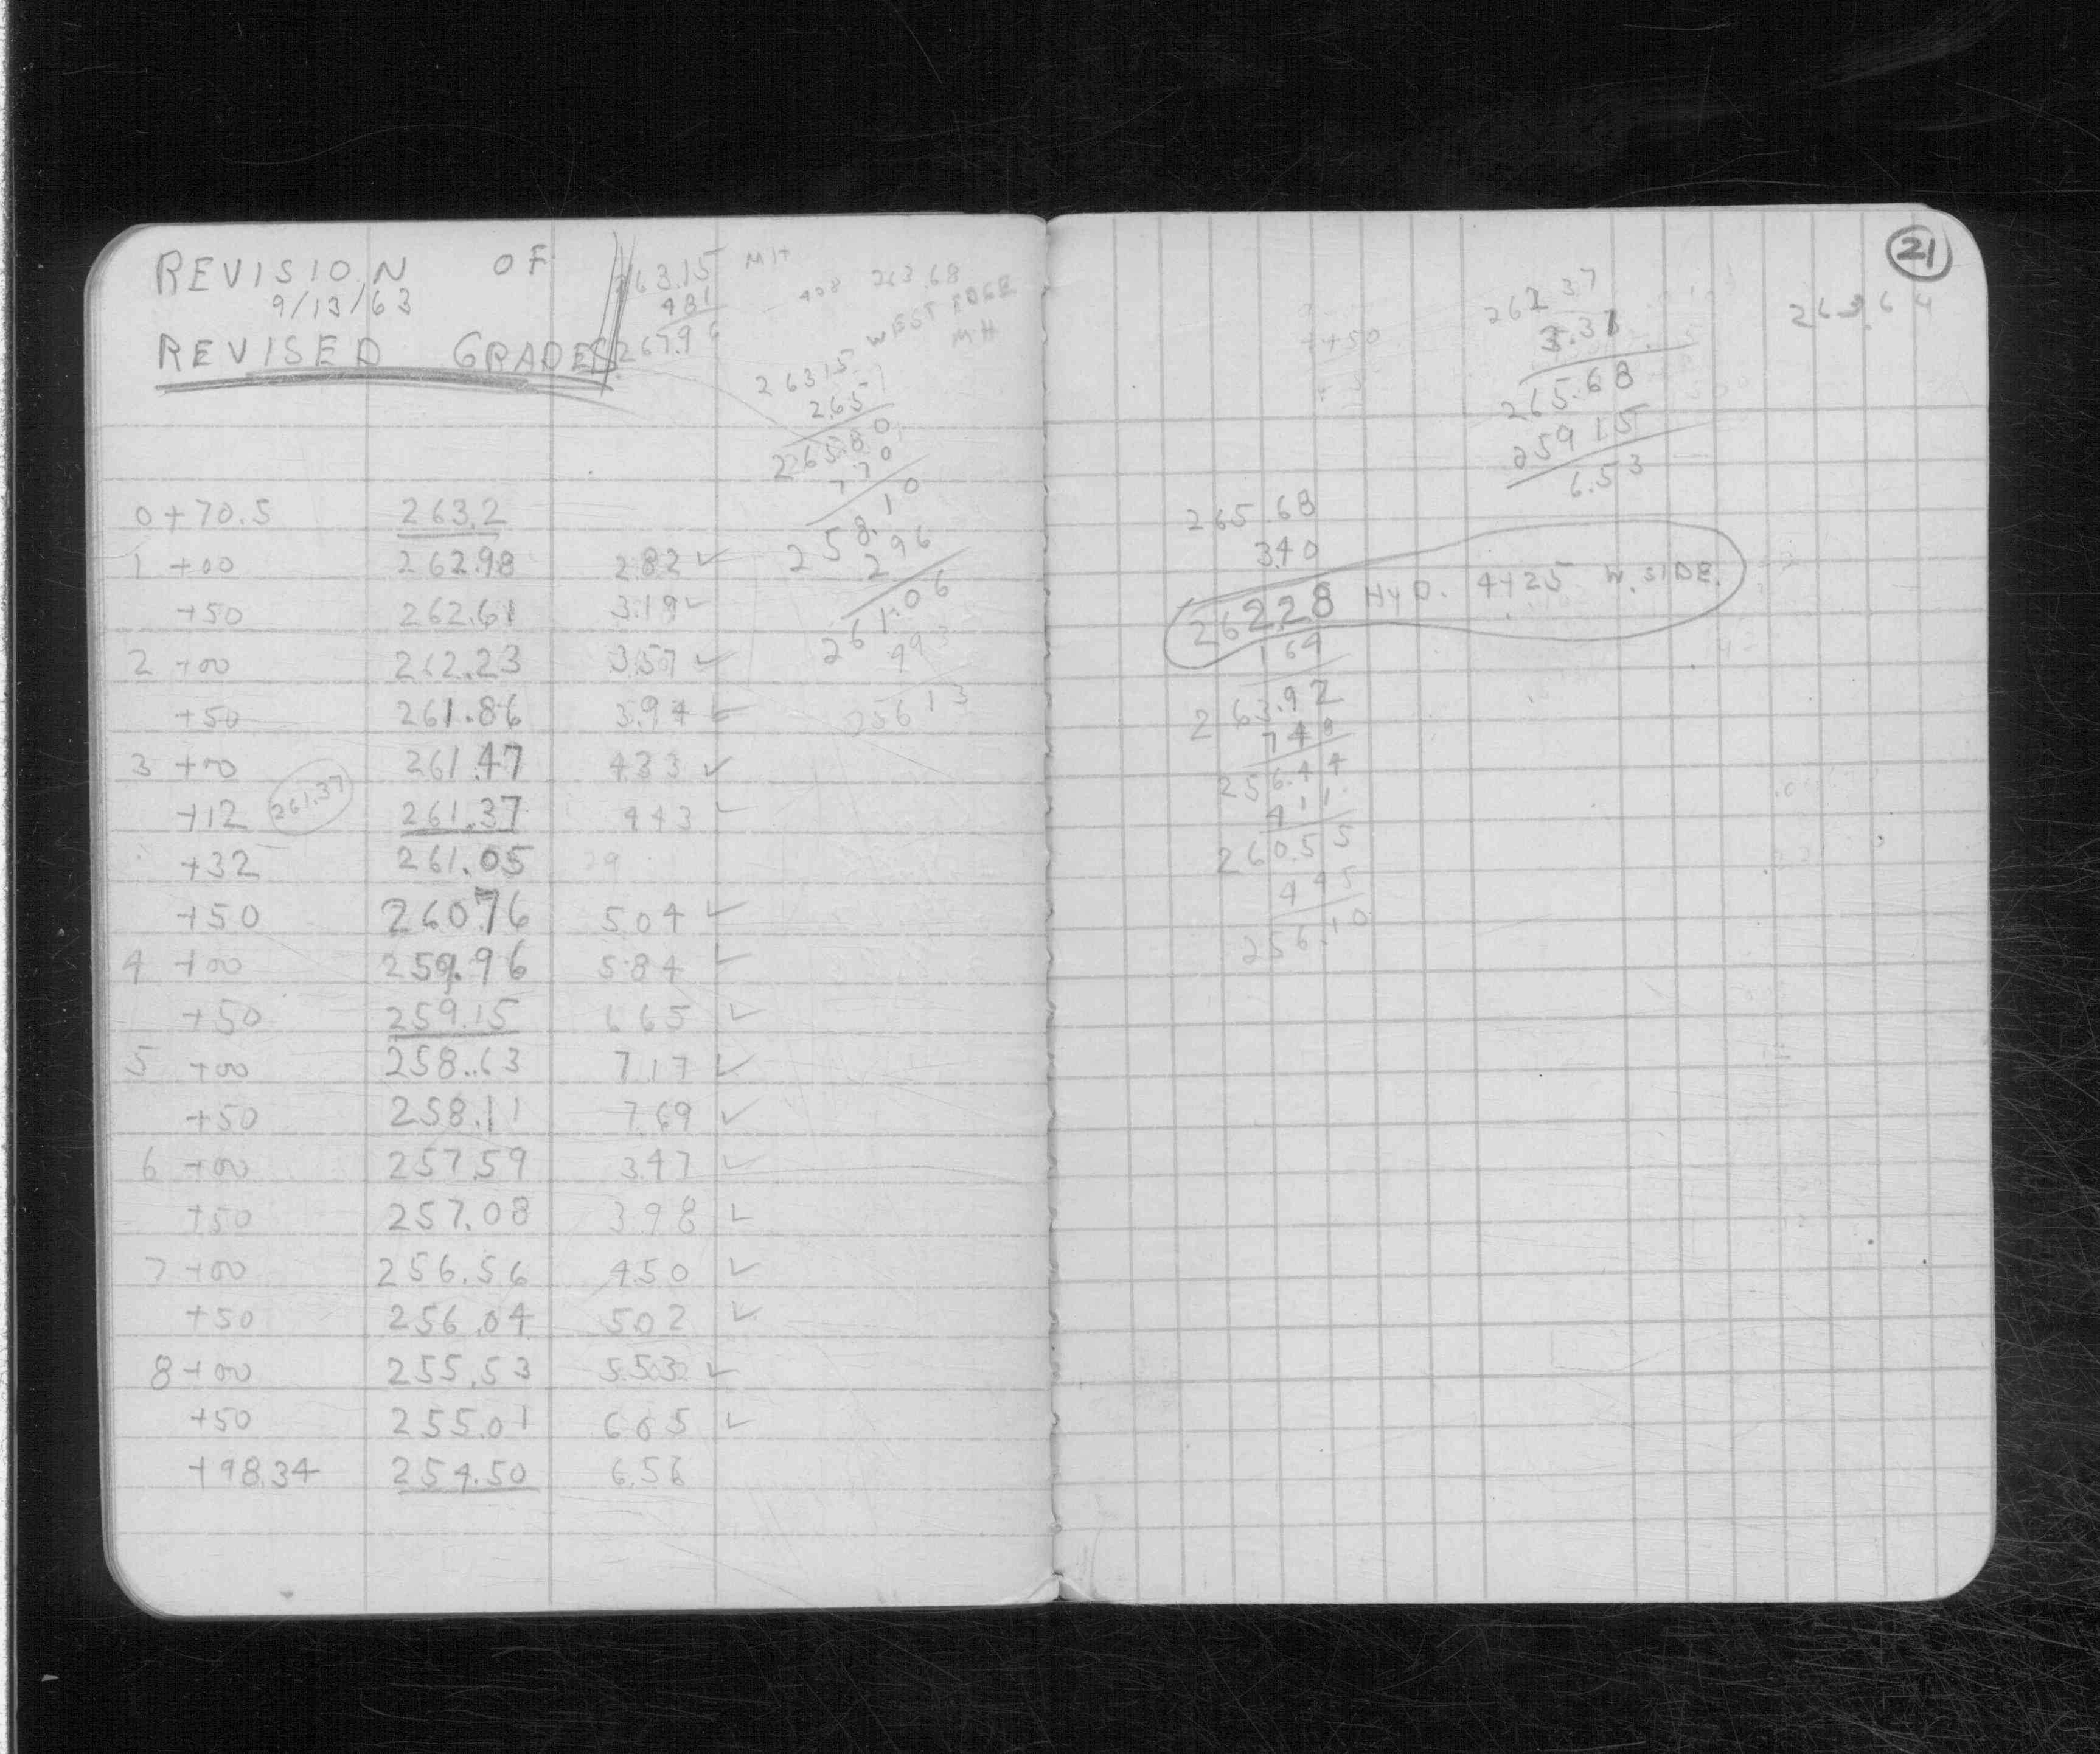 REVISION OF
9/13/63
REVISED GRADES
263.15 MH
4.81
267.96
408 263.68
WEST EDGE
MH
263.15
2.65
265.80
7.70
258.10
2.96
261.06
4.93
256.13
0+70.5 263.2
1+00 262.98 2.82 ✓
+50 262.61 3.19 ✓
2+00 262.23 3.57 ✓
+50 261.86 3.94 ✓
3+00 261.47 4.33 ✓
+12 261.37 261.37 4.43 ✓
+32 261.05 29
+50 260.76 5.04 ✓
4+00 259.96 5.84 ✓
+50 259.15 6.65 ✓
5+00 258.63 7.17 ✓
+50 258.11 7.69 ✓
6+00 257.59 3.47 ✓
+50 257.08 3.98 ✓
7+00 256.56 4.50 ✓
+50 256.04 5.02 ✓
8+00 255.53 5.53 ✓
+50 255.01 6.05 ✓
+98.34 254.50 6.56
21
++50
262.37
3.31
265.68
259.15
6.53
263.64
265.68
3.40
262.28 HYD. 4+25 W. SIDE.
1.69
263.92
7.48
256.44
4.11
260.55
4.45
256.10